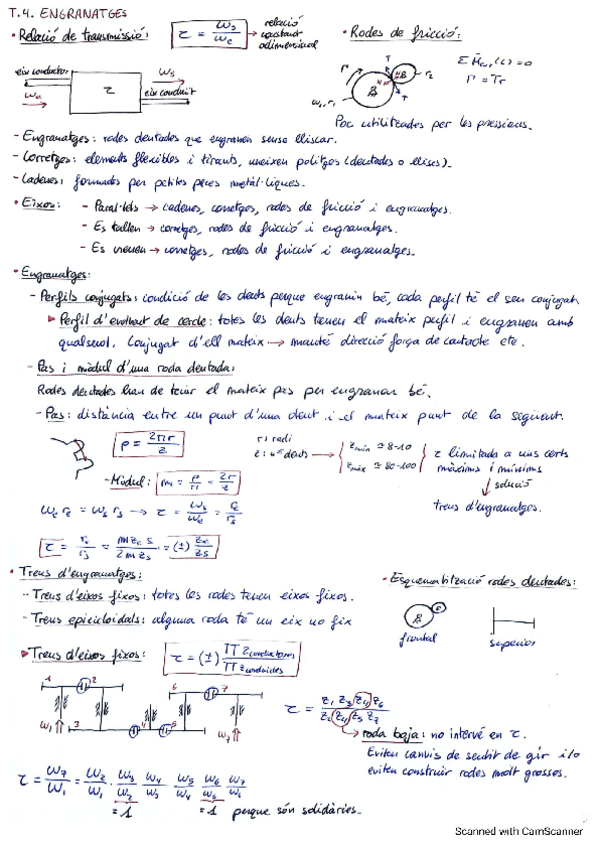 T.4. ENGRANATGES
• Relació de transmissió:
τ = ωs/ωe → relació constant adimensional
eix conductor
ωe
τ
ωs
eix conduït
• Rodes de fricció:
ΣM̄ext(C) = 0
Γ = Tr
Poc utilitzades per les pressions.
- Engranatges: rodes dentades que engranen sense lliscar.
- Corretges: elements flexibles i tirants, uneixen politges (dentades o llises).
- Cadenes: formades per petites peces metàl·liques.
• Eixos: - Paral·lels → cadenes, corretges, rodes de fricció i engranatges.
- Es tallen → corretges, rodes de fricció i engranatges.
- Es creuen → corretges, rodes de fricció i engranatges.
• Engranatges:
- Perfils conjugats: condició de les dents perque engranin bé, cada perfil té el seu conjugat.
▶ Perfil d'evolvent de cercle: totes les dents tenen el mateix perfil i engranen amb
qualsevol. Conjugat d'ell mateix → manté direcció força de contacte etc.
- Pas i mòdul d'una roda dentada:
Rodes dentades han de tenir el mateix pas per engranar bé.
- Pas: distància entre un punt d'una dent i el mateix punt de la següent.
p = 2πr/z
r: radi
z: nº dents → { zmín ≅ 8-10
zmàx ≅ 80-100
τ limitada a uns certs
màxims i mínims
↓ solució
trens d'engranatges.
- Mòdul: m = p/π = 2r/z
ωe re = ωs rs → τ = ωs/ωe = re/rs
τ = re/rs = m ze s/2 m zs = (±) ze/zs
• Trens d'engranatges:
- Trens d'eixos fixos: totes les rodes tenen eixos fixos.
- Trens epicicloidals: alguna roda té un eix no fix
• Esquematització rodes dentades:
frontal
superior
▶ Trens d'eixos fixos: τ = (±) Π z conductores/Π z conduïdes
1 2 3 4 5 6 7
ω1
ω7
τ = z1 z3 z4 z6/z2 z4 z5 z7
→ roda baja: no intervé en τ.
Eviten canvis de sentit de gir i/o
eviten construir rodes molt grosses.
τ = ω7/ω1 = ω2/ω1 · ω3/ω2 ω4/ω3 ω5/ω4 ω6/ω5 ω7/ω6
= 1 = 1 perque són solidàries.
Scanned with CamScanner